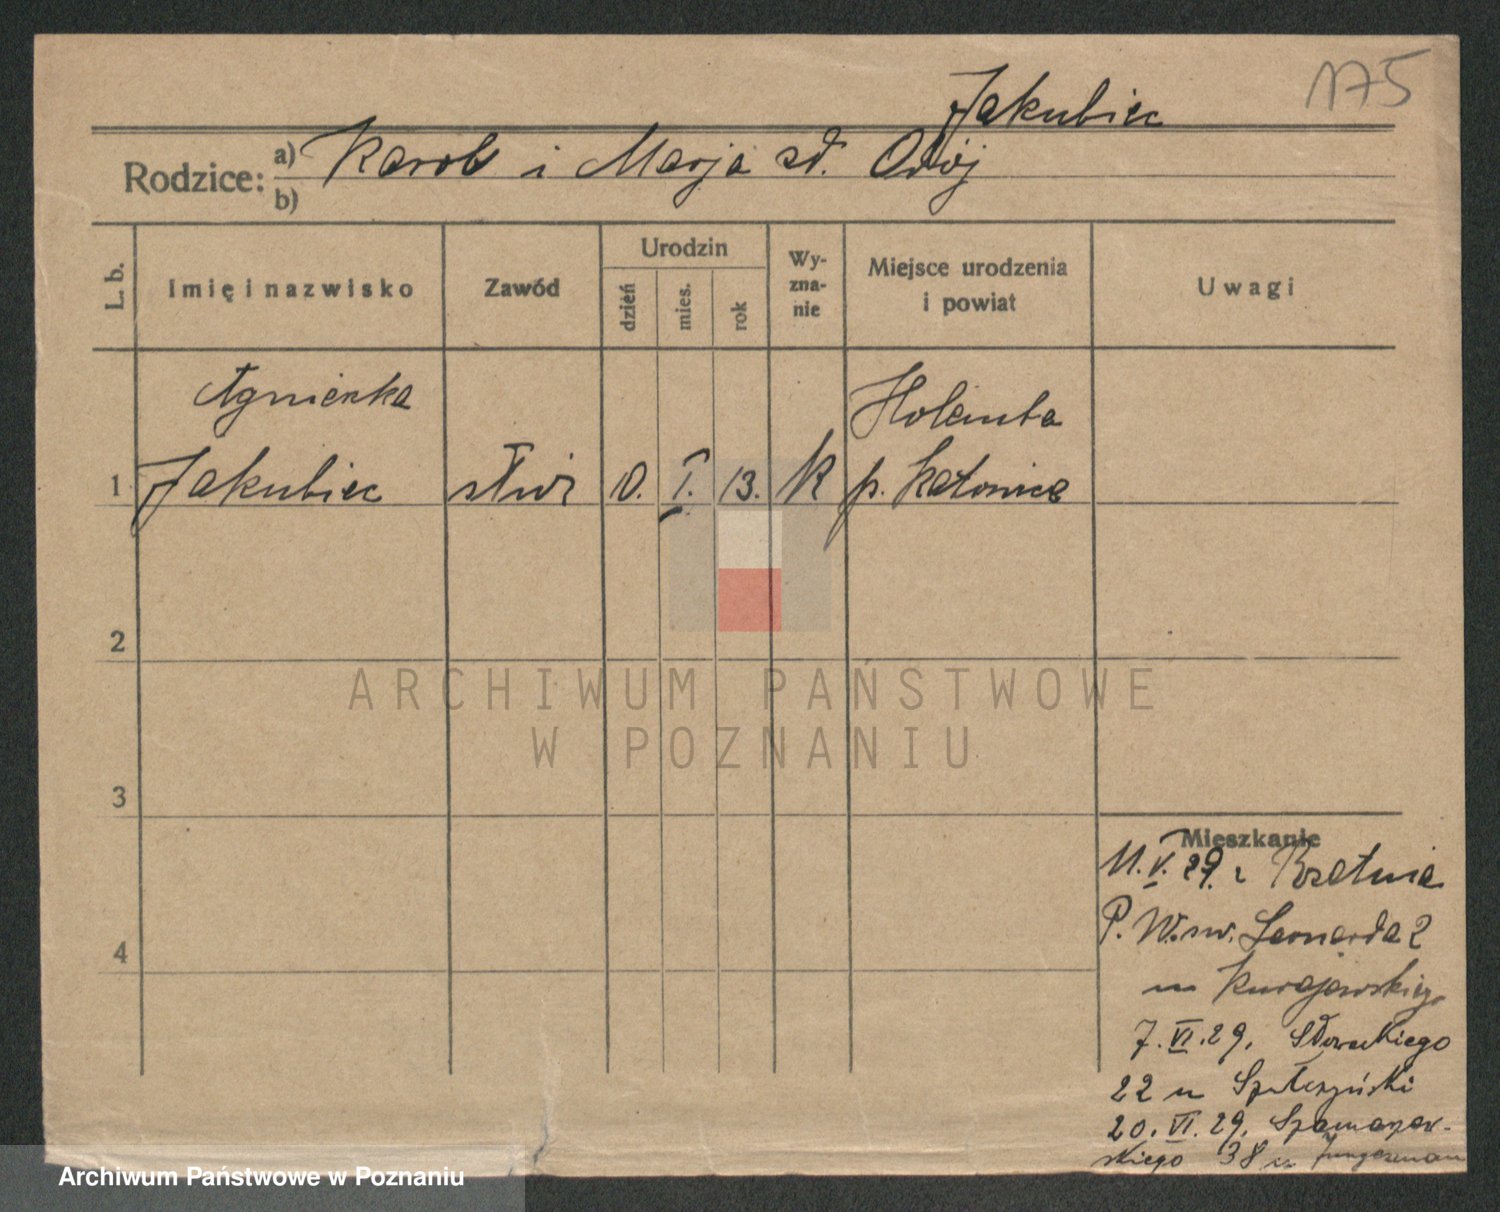 175
Jakubiec
Rodzice: a) Karol i Marja zd. Osój
b)
L. b.
Imię i nazwisko
Zawód
Urodzin
dzień
mies.
rok
Wy-
zna-
nie
Miejsce urodzenia
i powiat
Uwagi
Agnieszka
Holemba
1 Jakubiec służ 10. I. 13. K p. Katowice
2
3
4
Mieszkanie
11. V. 29. z
P. W. św. Leonarda 2
u
7. VI. 29. Słowackiego
22 u
20. VI. 29. Szamarzew-
skiego 38 u
ARCHIWUM PAŃSTWOWE
W POZNANIU
Archiwum Państwowe w Poznaniu